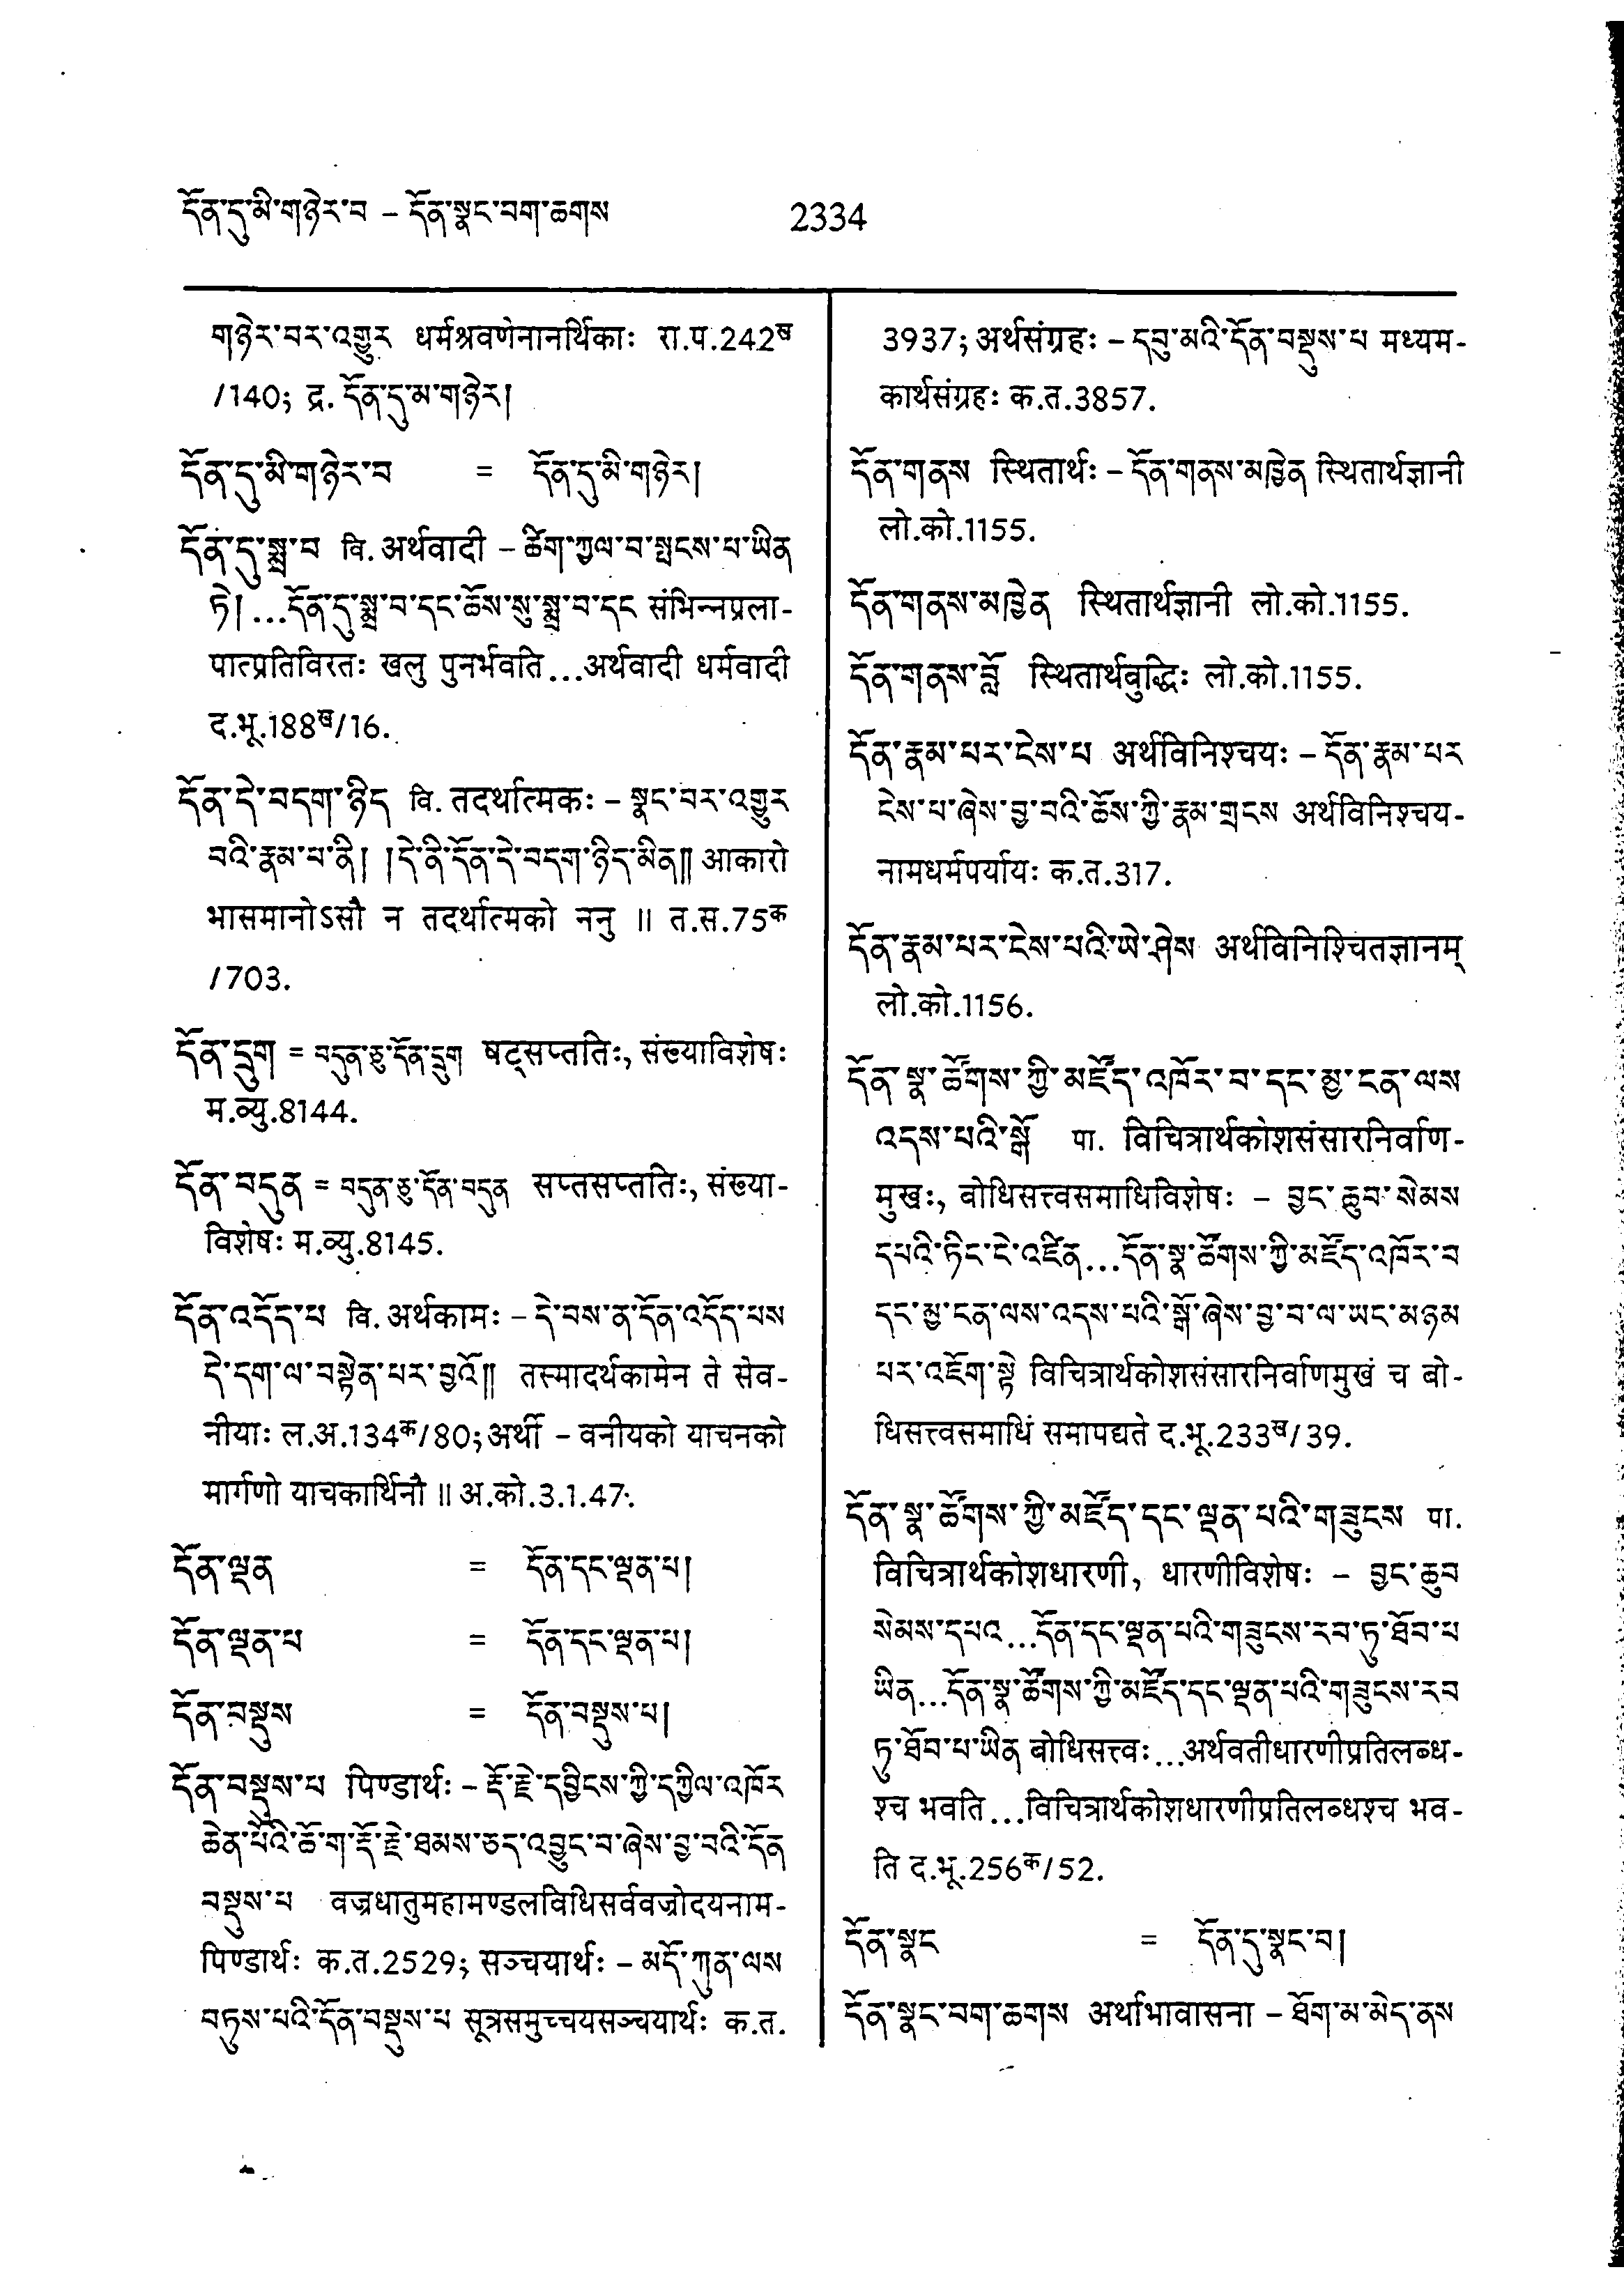 དོན་དུ་མི་གཉེར་བ – དོན་སྣང་བག་ཆགས 2334
གཉེར་བར་འགྱུར धर्मश्रवणेनानर्थिकाः रा.प.242ख
/140; द्र. དོན་དུ་མ་གཉེར།
དོན་དུ་མི་གཉེར་བ = དོན་དུ་མི་གཉེར།
དོན་དུ་སྨྲ་བ वि. अर्थवादी – ཚིག་ཀྱལ་བ་སྤངས་པ་ཡིན
ཏེ། ...དོན་དུ་སྨྲ་བ་དང་ཆོས་སུ་སྨྲ་བ་དང संभिन्नप्रला-
पात्प्रतिविरतः खलु पुनर्भवति...अर्थवादी धर्मवादी
द.भू.188ख/16.
དོན་དེ་བདག་ཉིད वि. तदर्थात्मकः – སྣང་བར་འགྱུར
བའི་རྣམ་པ་ནི། །དེ་ནི་དོན་དེ་བདག་ཉིད་མིན༎ आकारो
भासमानोऽसौ न तदर्थात्मको ननु ॥ त.स.75क
/703.
དོན་དྲུག = བདུན་ཅུ་དོན་དྲུག षट्सप्ततिः, संख्याविशेषः
म.व्यु.8144.
དོན་བདུན = བདུན་ཅུ་དོན་བདུན सप्तसप्ततिः, संख्या-
विशेषः म.व्यु.8145.
དོན་འདོད་པ वि. अर्थकामः – དེ་བས་ན་དོན་འདོད་པས
དེ་དག་ལ་བསྟེན་པར་བྱའོ༎ तस्मादर्थकामेन ते सेव-
नीयाः ल.अ.134क/80; अर्थी – वनीयको याचनको
मार्गणो याचकार्थिनौ ॥ अ.को.3.1.47.
དོན་ལྡན = དོན་དང་ལྡན་པ།
དོན་ལྡན་པ = དོན་དང་ལྡན་པ།
དོན་བསྡུས = དོན་བསྡུས་པ།
དོན་བསྡུས་པ पिण्डार्थः – རྡོ་རྗེ་དབྱིངས་ཀྱི་དཀྱིལ་འཁོར
ཆེན་པོའི་ཆོ་ག་རྡོ་རྗེ་ཐམས་ཅད་འབྱུང་བ་ཞེས་བྱ་བའི་དོན
བསྡུས་པ वज्रधातुमहामण्डलविधिसर्ववज्रोदयनाम-
पिण्डार्थः क.त.2529; सञ्चयार्थः – མདོ་ཀུན་ལས
བཏུས་པའི་དོན་བསྡུས་པ सूत्रसमुच्चयसञ्चयार्थः क.त.
3937; अर्थसंग्रहः – དབུ་མའི་དོན་བསྡུས་པ मध्यम-
कार्थसंग्रहः क.त.3857.
དོན་གནས स्थितार्थः – དོན་གནས་མཁྱེན स्थितार्थज्ञानी
लो.को.1155.
དོན་གནས་མཁྱེན स्थितार्थज्ञानी लो.को.1155.
དོན་གནས་བློ स्थितार्थबुद्धिः लो.को.1155.
དོན་རྣམ་པར་ངེས་པ अर्थविनिश्चयः – དོན་རྣམ་པར
ངེས་པ་ཞེས་བྱ་བའི་ཆོས་ཀྱི་རྣམ་གྲངས अर्थविनिश्चय-
नामधर्मपर्यायः क.त.317.
དོན་རྣམ་པར་ངེས་པའི་ཡེ་ཤེས अर्थविनिश्चितज्ञानम्
लो.को.1156.
དོན་སྣ་ཚོགས་ཀྱི་མཛོད་འཁོར་བ་དང་མྱ་ངན་ལས
འདས་པའི་སྒོ पा. विचित्रार्थकोशसंसारनिर्वाण-
मुखः, बोधिसत्त्वसमाधिविशेषः – བྱང་ཆུབ་སེམས
དཔའི་ཏིང་ངེ་འཛིན...དོན་སྣ་ཚོགས་ཀྱི་མཛོད་འཁོར་བ
དང་མྱ་ངན་ལས་འདས་པའི་སྒོ་ཞེས་བྱ་བ་ལ་ཡང་མཉམ
པར་འཇོག་སྟེ विचित्रार्थकोशसंसारनिर्वाणमुखं च बो-
धिसत्त्वसमाधिं समापद्यते द.भू.233ख/39.
དོན་སྣ་ཚོགས་ཀྱི་མཛོད་དང་ལྡན་པའི་གཟུངས पा.
विचित्रार्थकोशधारणी, धारणीविशेषः – བྱང་ཆུབ
སེམས་དཔའ...དོན་དང་ལྡན་པའི་གཟུངས་རབ་ཏུ་ཐོབ་པ
ཡིན...དོན་སྣ་ཚོགས་ཀྱི་མཛོད་དང་ལྡན་པའི་གཟུངས་རབ
ཏུ་ཐོབ་པ་ཡིན बोधिसत्त्वः...अर्थवतीधारणीप्रतिलब्ध-
श्च भवति...विचित्रार्थकोशधारणीप्रतिलब्धश्च भव-
ति द.भू.256क/52.
དོན་སྣང = དོན་དུ་སྣང་བ།
དོན་སྣང་བག་ཆགས अर्थाभावासना – ཐོག་མ་མེད་ནས